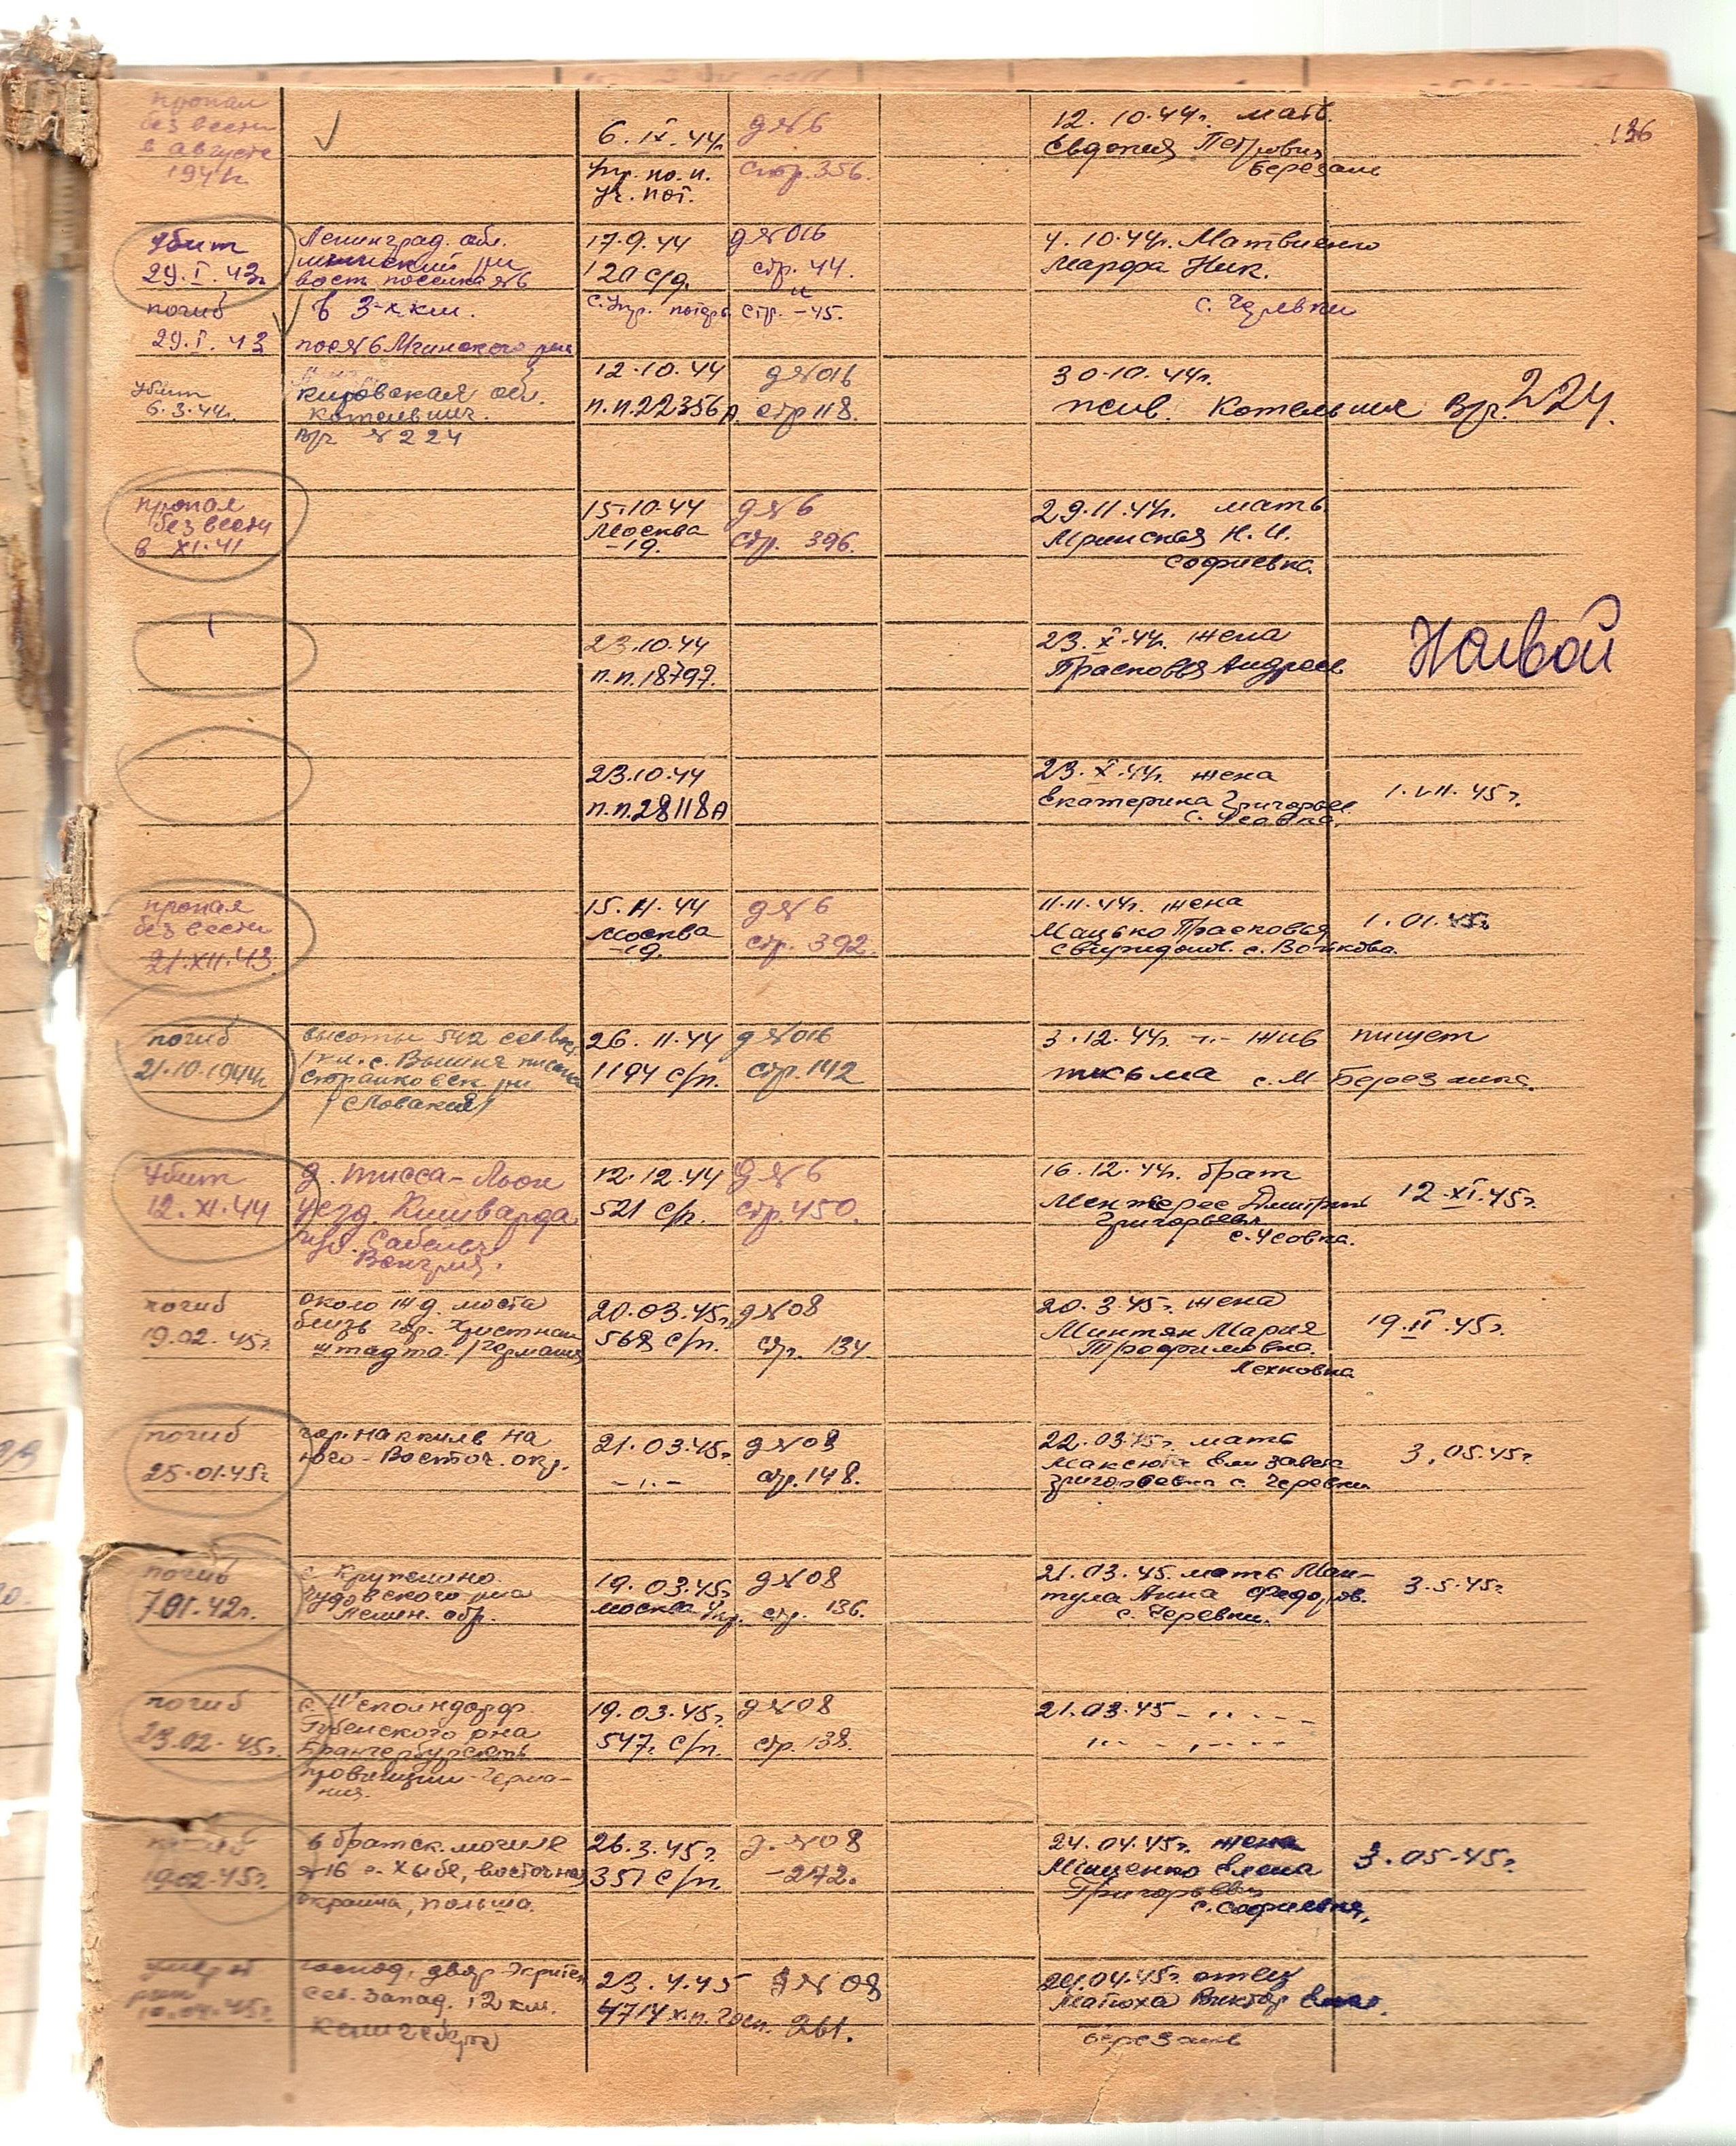 136
пропал
без вести
в августе
1944г.
6.IX.44г.
Упр. по и.
уч. пот.
д№6
Стр. 356.
12.10.44г. мать
Евдокия Петровна
Березань
убит
29.I.43г.
погиб
29.I.43
Ленинград. обл.
Мгинский р-н
вост. поселка №6
в 3-х км.
пос №6 Мгинского р-на
17.9.44
120 с/д.
с. Упр. потерь
д№016
стр. 44.
и
стр. -45.
4.10.44г. Матвиенко
Марфа Ник.
с. Черевки
убит
6.3.44г.
Кировская обл.
Котельнич.
№ 224
12.10.44
п.п.22356А
д№016
стр 118.
30.10.44г.
жив. Котельнич 224.
пропал
без вести
в XI.41
15-10.44
Москва
-19.
д№6
стр. 396.
29.11.44г. мать
Н. И.
Софиевка.
23.10.44
п.п.18797.
23.X.44г. жена
Прасковья Андреев
Живой
23.10.44
п.п.28118А
23.X.44г. жена
Екатерина Григорьев
с. Усовка.
1.VII.45г.
пропал
без вести
21.XII.43.
15.11.44
Москва
-19.
д№6
стр. 392.
11.11.44г. жена
Мацько Прасковья
с. Войкова.
1.01.45г.
погиб
21.10.1944г.
высоты 542 сев. вост.
1 км. с. Вышня
р-н
/Словакия/
26.11.44
1194 с/п.
д№016
стр.142
3.12.44г. -"- жив пишет
письма с. М Березанка.
убит
12.XI.44
д. Тисса-Льок
уезд. Кишварда
Венгрия.
12.12.44
521 с/п.
д№6
стр.450.
16.12.44г. брат
Ментерес Дмитрий
Григорьевич
с. Усовка.
12.XI.45г.
погиб
19.02.45г.
около ж д. моста
близь гор. Христиан
штадта. /Германия
20.03.45г.
568 с/п.
д№08
стр. 134.
20.3.45г. жена
Минтян Мария
Трофимовна.
Лехновка
19.II.45г.
погиб
25.01.45г.
гор. Наккиль на
юго-Восточ. окр.
21.03.45г.
-"-
д№08
стр.148.
22.03.45г. мать
Максюта Елизавета
Григорьевна с. Черевки
3.05.45г.
погиб
7.01.42г.
с. Крупелино.
Чудовского р-на
Ленин. обл.
19.03.45г.
Москва Упр.
д№08
стр. 136.
21.03.45. мать Ман-
тула Анна Федоров.
с. Черевки.
3.5.45г.
погиб
23.02.45г.
Губенского р-на
провинции-Герма-
ния.
19.03.45г.
547. с/п.
д№08
стр. 138.
21.03.45 - " - -
" - " - -
погиб
19.02.45г.
в братск. могиле
№16 с. Хыбе, восточная
окраина, Польша.
26.3.45г.
351 с/п.
д.№08
-272.
24.04.45г. жена
Мищенко Елена
Григорьевна
с. Софиевка,
3.05.45г.
умер от
ран
10.04.45г.
господ. двор
Сев. запад. 12 км.
Кенигсберга
23.4.45
4714 х.п. Госп.
д№08
261.
24.04.45г. отец
Матюха Виктор
Березань